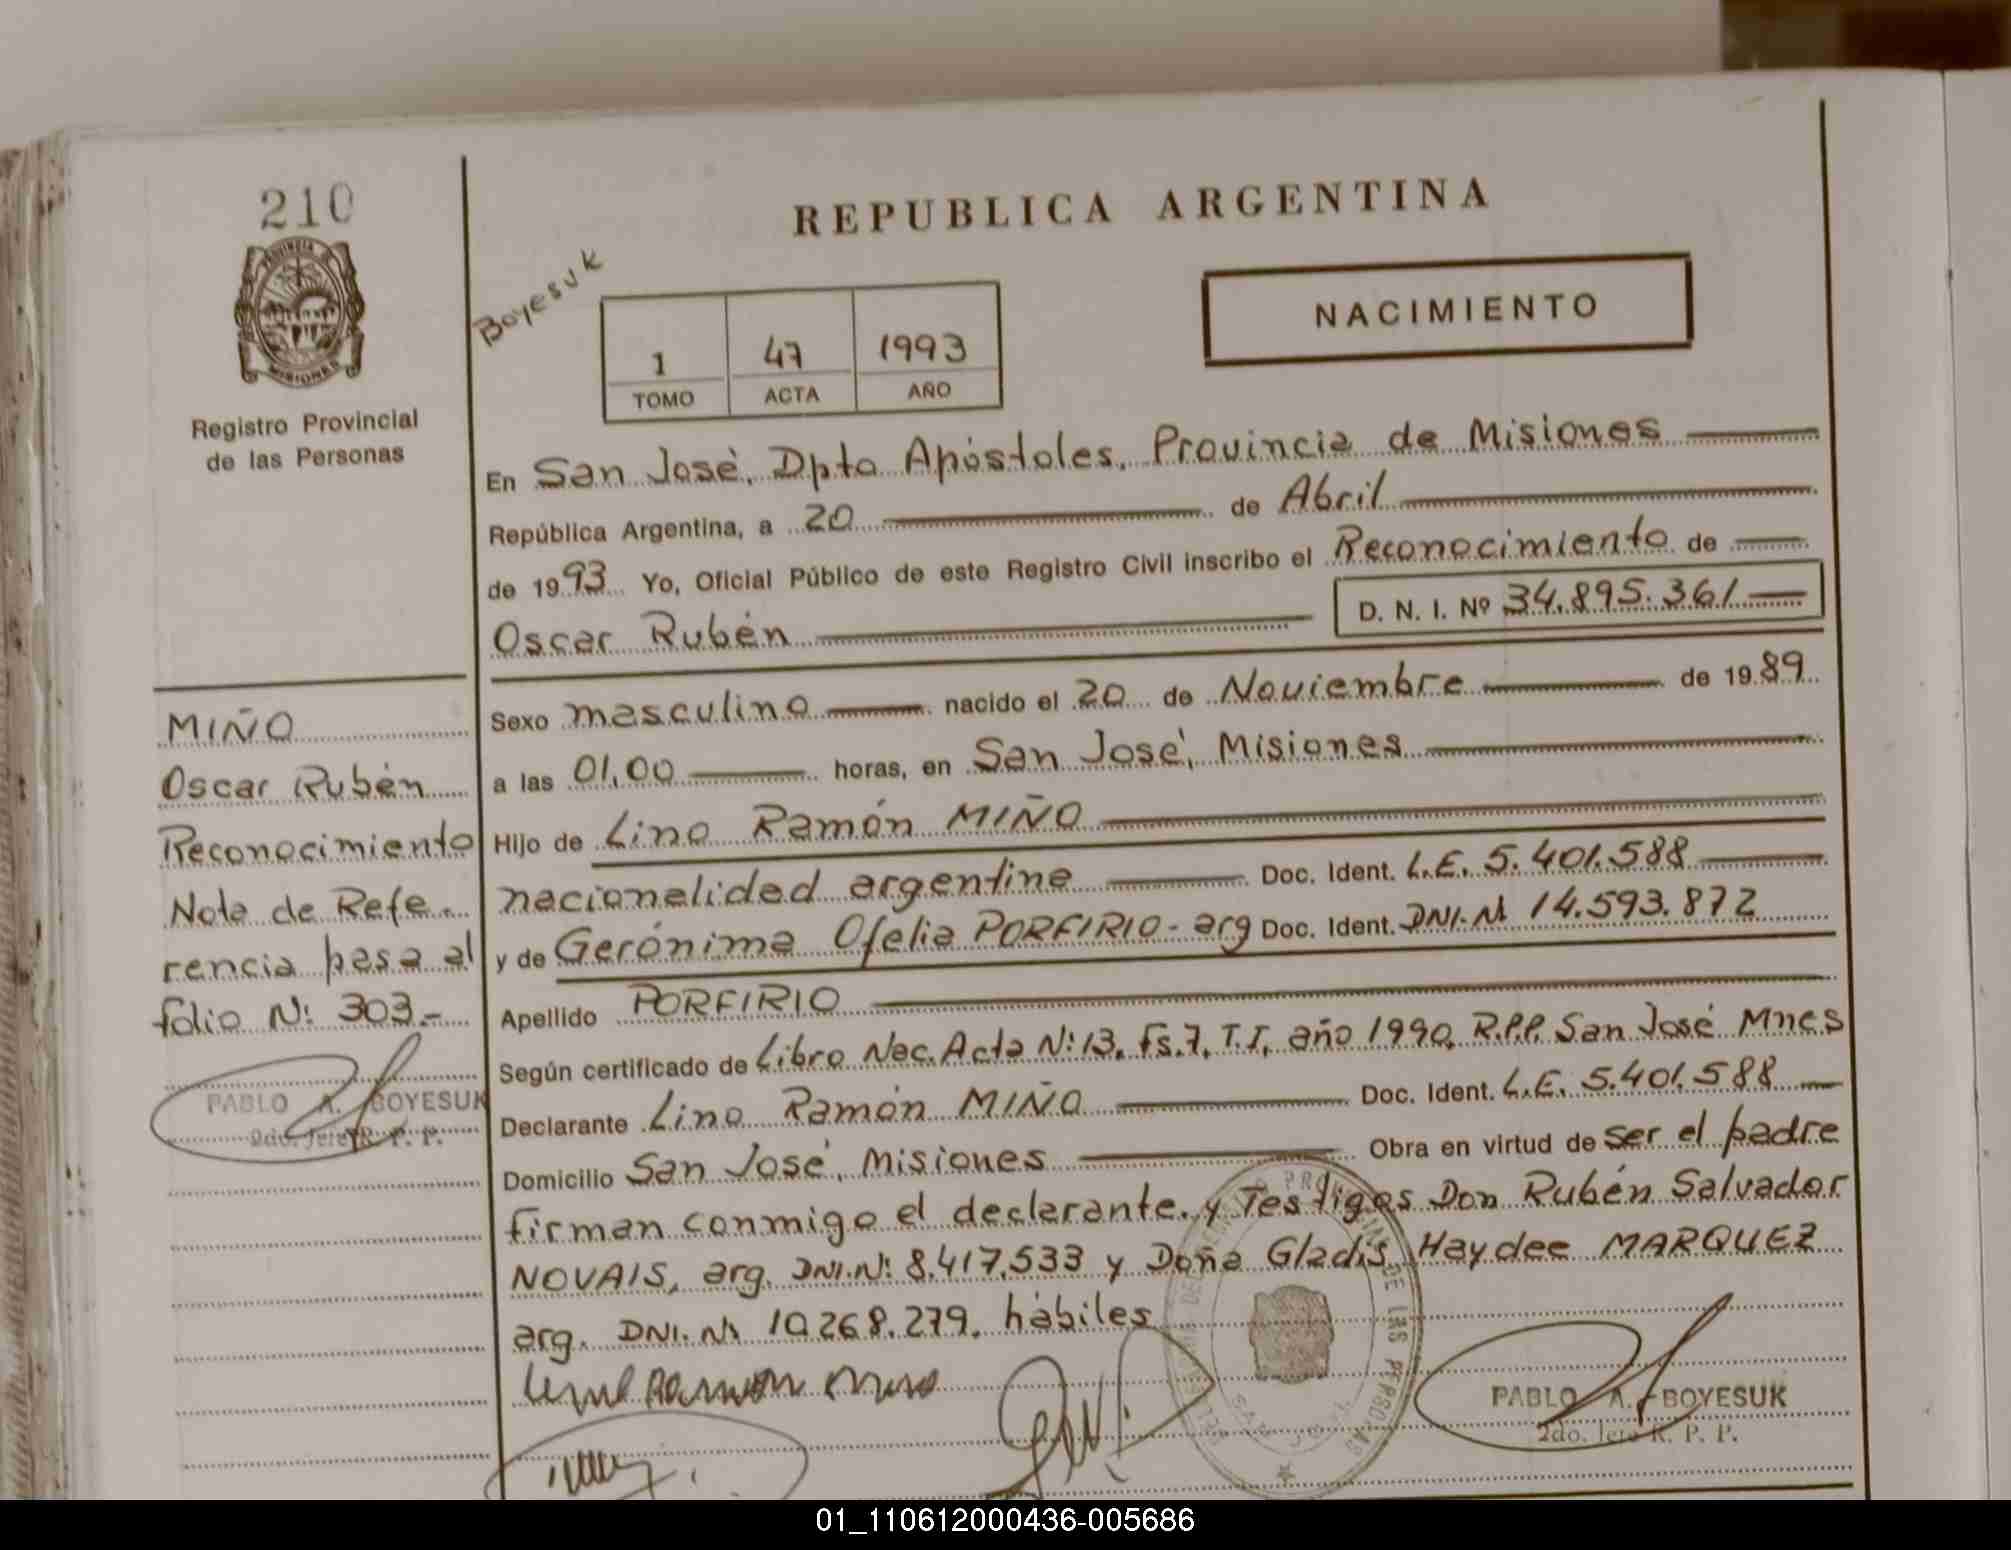 210
PROVINCIA
MISIONES
Registro Provincial
de las Personas
REPUBLICA ARGENTINA
Boyesuk
NACIMIENTO
1 47 1993
TOMO ACTA AÑO
En San José, Dpto Apóstoles, Provincia de Misiones
República Argentina, a 20 de Abril
de 1993 Yo, Oficial Público de este Registro Civil inscribo el Reconocimiento de
Oscar Rubén D. N. I. Nº 34.895.361
Sexo masculino nacido el 20 de Noviembre de 1989
a las 01,00 horas, en San José, Misiones
Hijo de Lino Ramón MIÑO
nacionalidad argentina Doc. Ident. L.E. 5.401.588
y de Gerónima Ofelia PORFIRIO - arg Doc. Ident. DNI. Nº 14.593.872
Apellido PORFIRIO
Según certificado de Libro Nac. Acta Nº 13, Fs. 7, T. I, año 1990, R.P.P. San José Mnes
Declarante Lino Ramón MIÑO Doc. Ident. L.E. 5.401.588
Domicilio San José, Misiones Obra en virtud de ser el padre
firman conmigo el declarante, y Testigos Don Rubén Salvador
NOVAIS, arg. DNI. Nº 8.417.533 y Doña Gladis Haydee MARQUEZ
arg. DNI. Nº 10.268.279, hábiles
Ramon
PABLO A. BOYESUK
2do. Jefe R. P. P.
DE LAS PERSONAS
SAN JOSE
MIÑO
Oscar Rubén
Reconocimiento
Nota de Refe-
rencia pasa al
folio Nº 303.-
PABLO A. BOYESUK
2do. Jefe R. P. P.
01_110612000436-005686